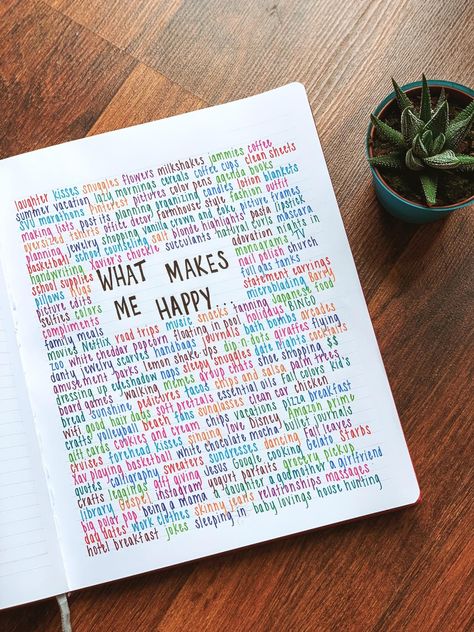 laughter kisses snuggies flowers milkshakes jammies coffee
summer vacation lazy mornings cereals coffee cups clean sheets
SVU marathons pinterest pictures color pens agenda books
making lists post its planning organizing candles lotion blankets
oversized tshirts office decor farmhouse style fashion picture frames
planning jewelry shopping vanilla Tom and toys outfit
basketball school counseling salt blonde highlights pasta lipstick
handwriting Xavier's cheekie succulents natural curls mascara
school supplies adoration nights in
pillows monograms
picture edits nail polish church
selfies colors full gas tanks
compliments statement earrings
family meals microblading Barry
WHAT MAKES
ME HAPPY...
movies Netflix road trips music snacks tanning Japanese food
zoo white cheddar popcorn floating in pool holidays BINGO
dantv jewelry scarves handbags journals bath bombs giraffes flying
amusement parks lemon shake ups dip n dots arcades cocktails
dressing up eyeshadow naps sleepy snuggles date nights candles
board games walking memes group chats shoe shopping $$
bread Sunshine pedicures tacos chips and salsa palm trees
wifi good hair days soft pretzels essential oils fall colors kid's
crafts volleyball beach fans sunglasses clean car chicken
gift cards cookies and cream chips vacations pizza breakfast
cruises forehead kisses singing love Disney Amazon prime
Xav playing basketball white chocolate mocha bullet journals
quotes calligraphy sweaters sundresses dancing fall leaves
crafts leggings gift giving Jesus Google cooking Gelato Starbs
library Gospel instagram yogurt parfaits grocery pickup
big polar pop being a mama a daughter a godmother a girlfriend
dad dates work clothes skinny jeans relationships massages
hotel breakfast jokes sleeping in baby lovings house hunting